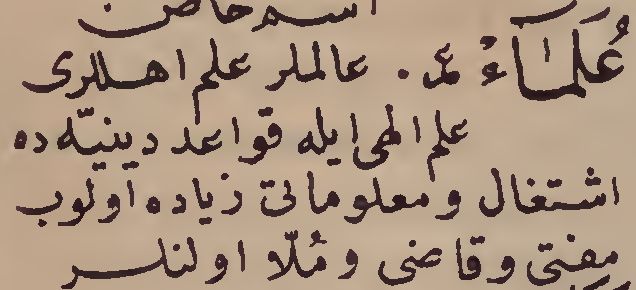 اسم خاص
عُلَمَآءُ عر. عالملر علم اهللری
علم الهی ایله قواعد دینیّه ده
اشتغال و معلوماتی زیاده اولوب
مفتی و قاضی و مُلّا اولنلر